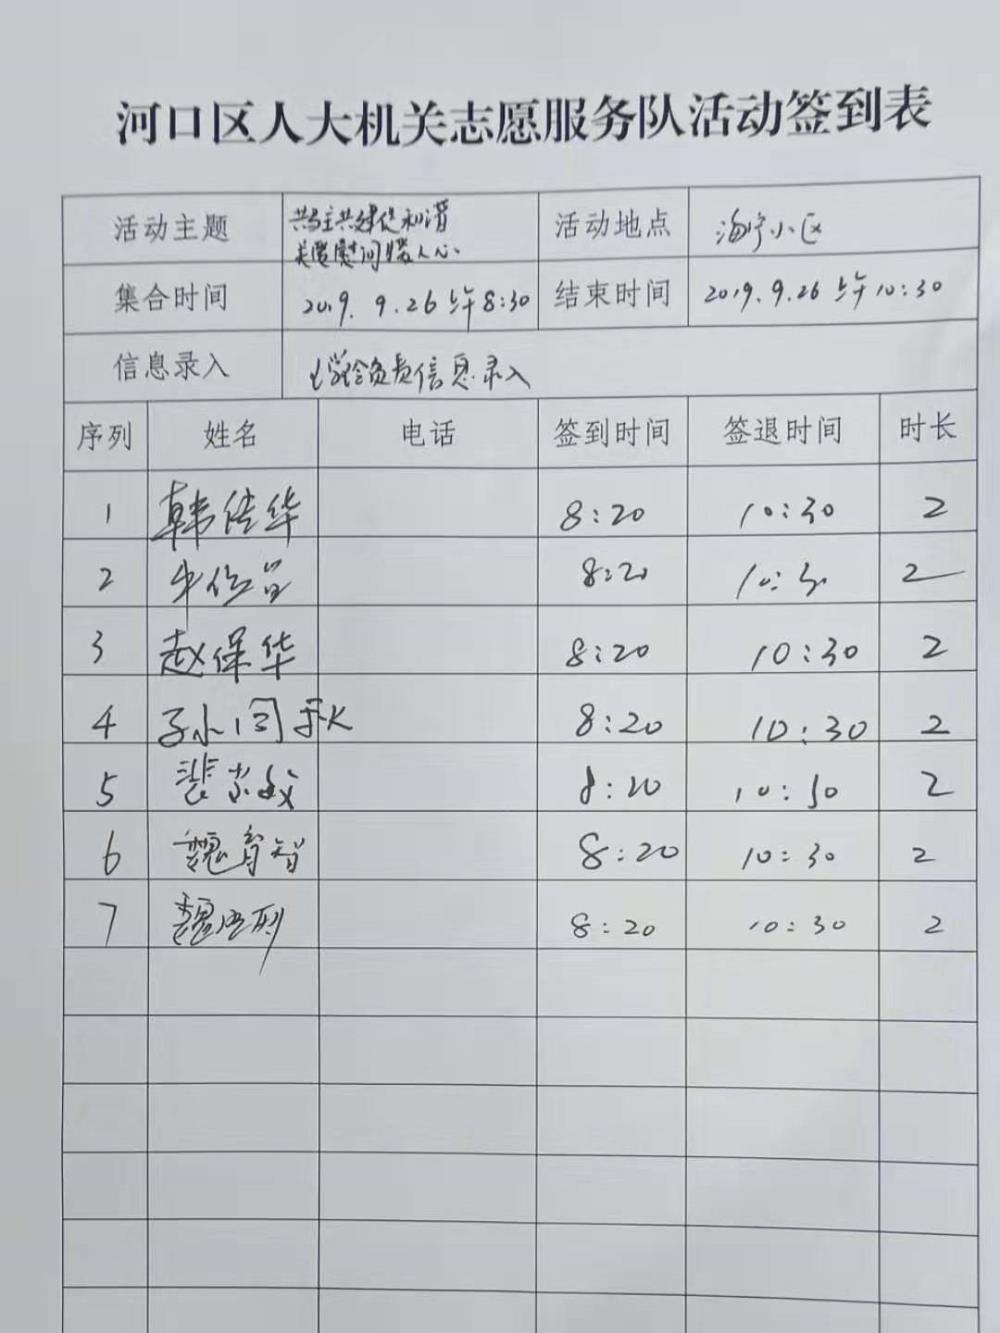 河口区人大机关志愿服务队活动签到表
活动主题 共驻共建促和谐 关爱慰问暖人心 活动地点 海宁小区
集合时间 2019.9.26上午8:30 结束时间 2019.9.26上午10:30
信息录入 负责信息录入
序列 姓名 电话 签到时间 签退时间 时长
1 韩传华 8:20 10:30 2
2 8:20 10:30 2
3 赵保华 8:20 10:30 2
4 8:20 10:30 2
5 8:20 10:30 2
6 魏育智 8:20 10:30 2
7 魏 8:20 10:30 2